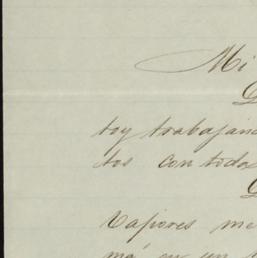 Mi
toy trabajan
tos con toda
Vapores me
má en un